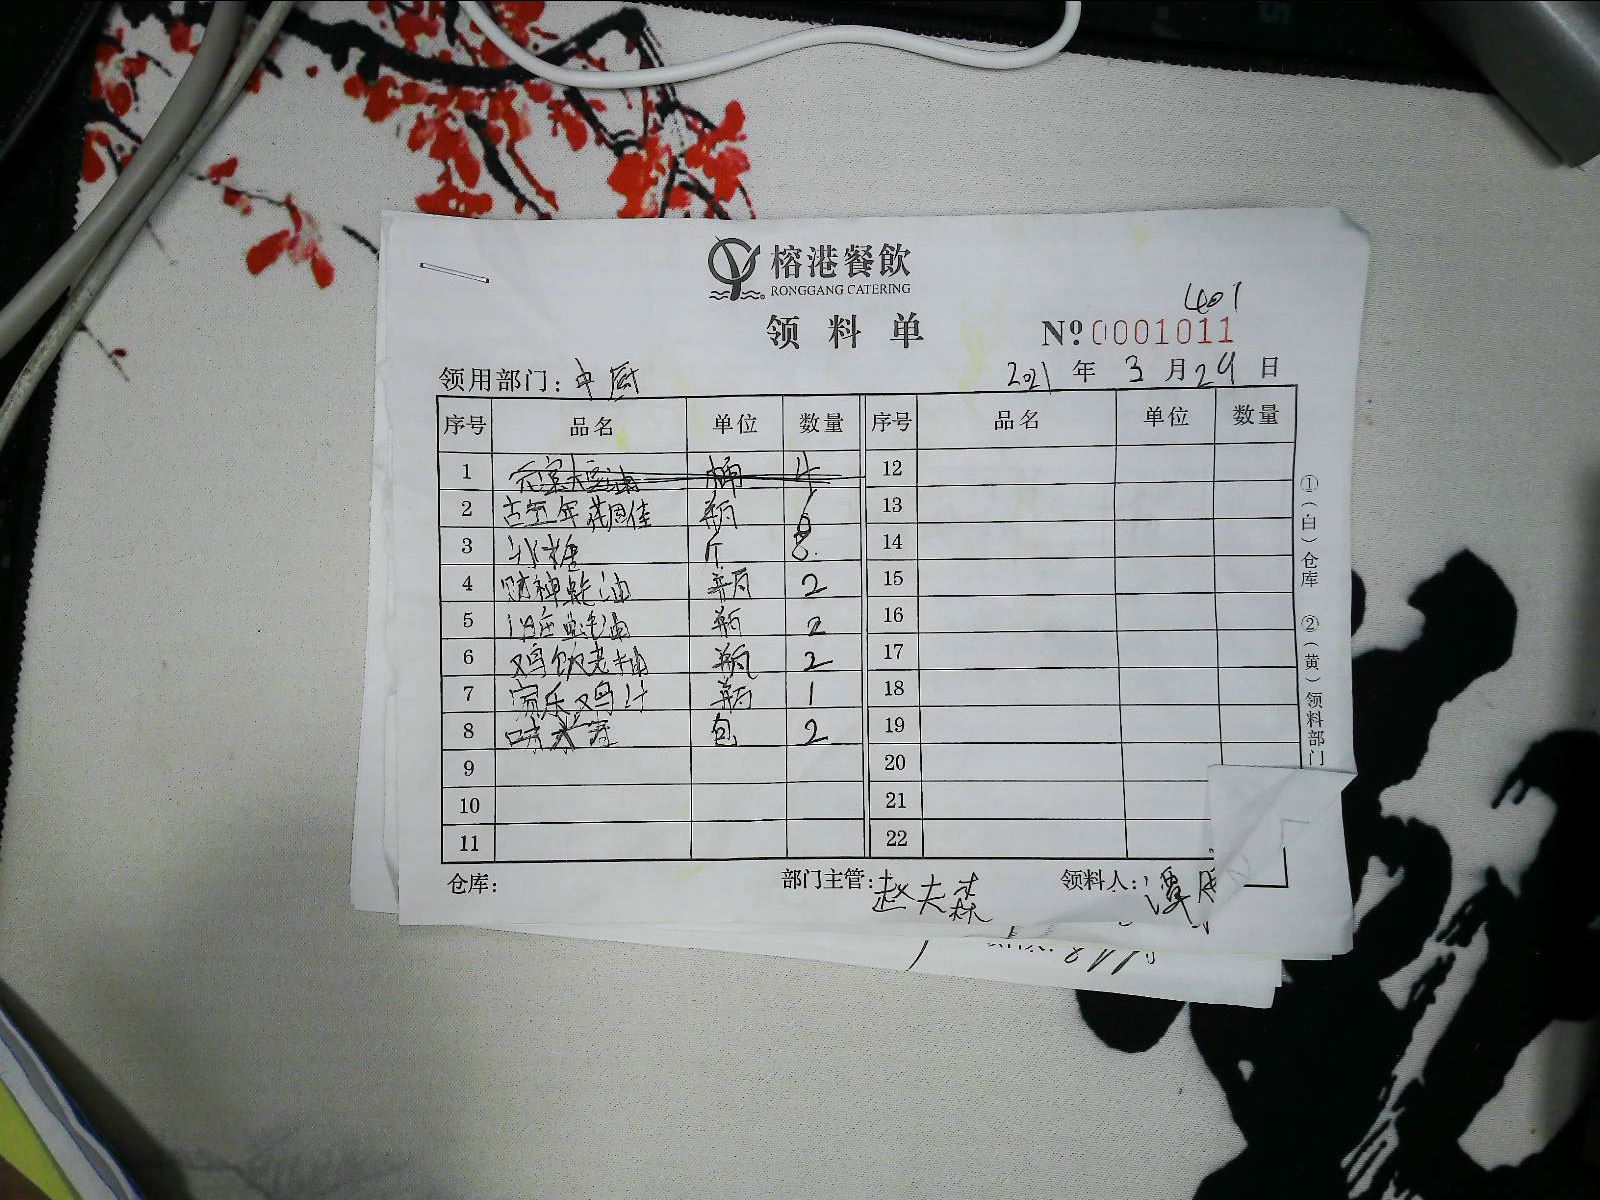 榕港餐飲
RONGGANG CATERING
领料单
401
Nº 0001011
领用部门：中厨
2021 年 3 月 29 日
序号 品名 单位 数量 序号 品名 单位 数量
1 桶 4 12
2 古越年花雕佳 瓶 6 13
3 冰糖 斤 8. 14
4 财神蚝油 瓶 2 15
5 旧庄蚝油 瓶 2 16
6 鸡饭老抽 瓶 2 17
7 家乐鸡汁 瓶 1 18
8 味 包 2 19
9 20
10 21
11 22
仓库： 部门主管：赵夫森 领料人：谭
①（白）仓库 ②（黄）领料部门